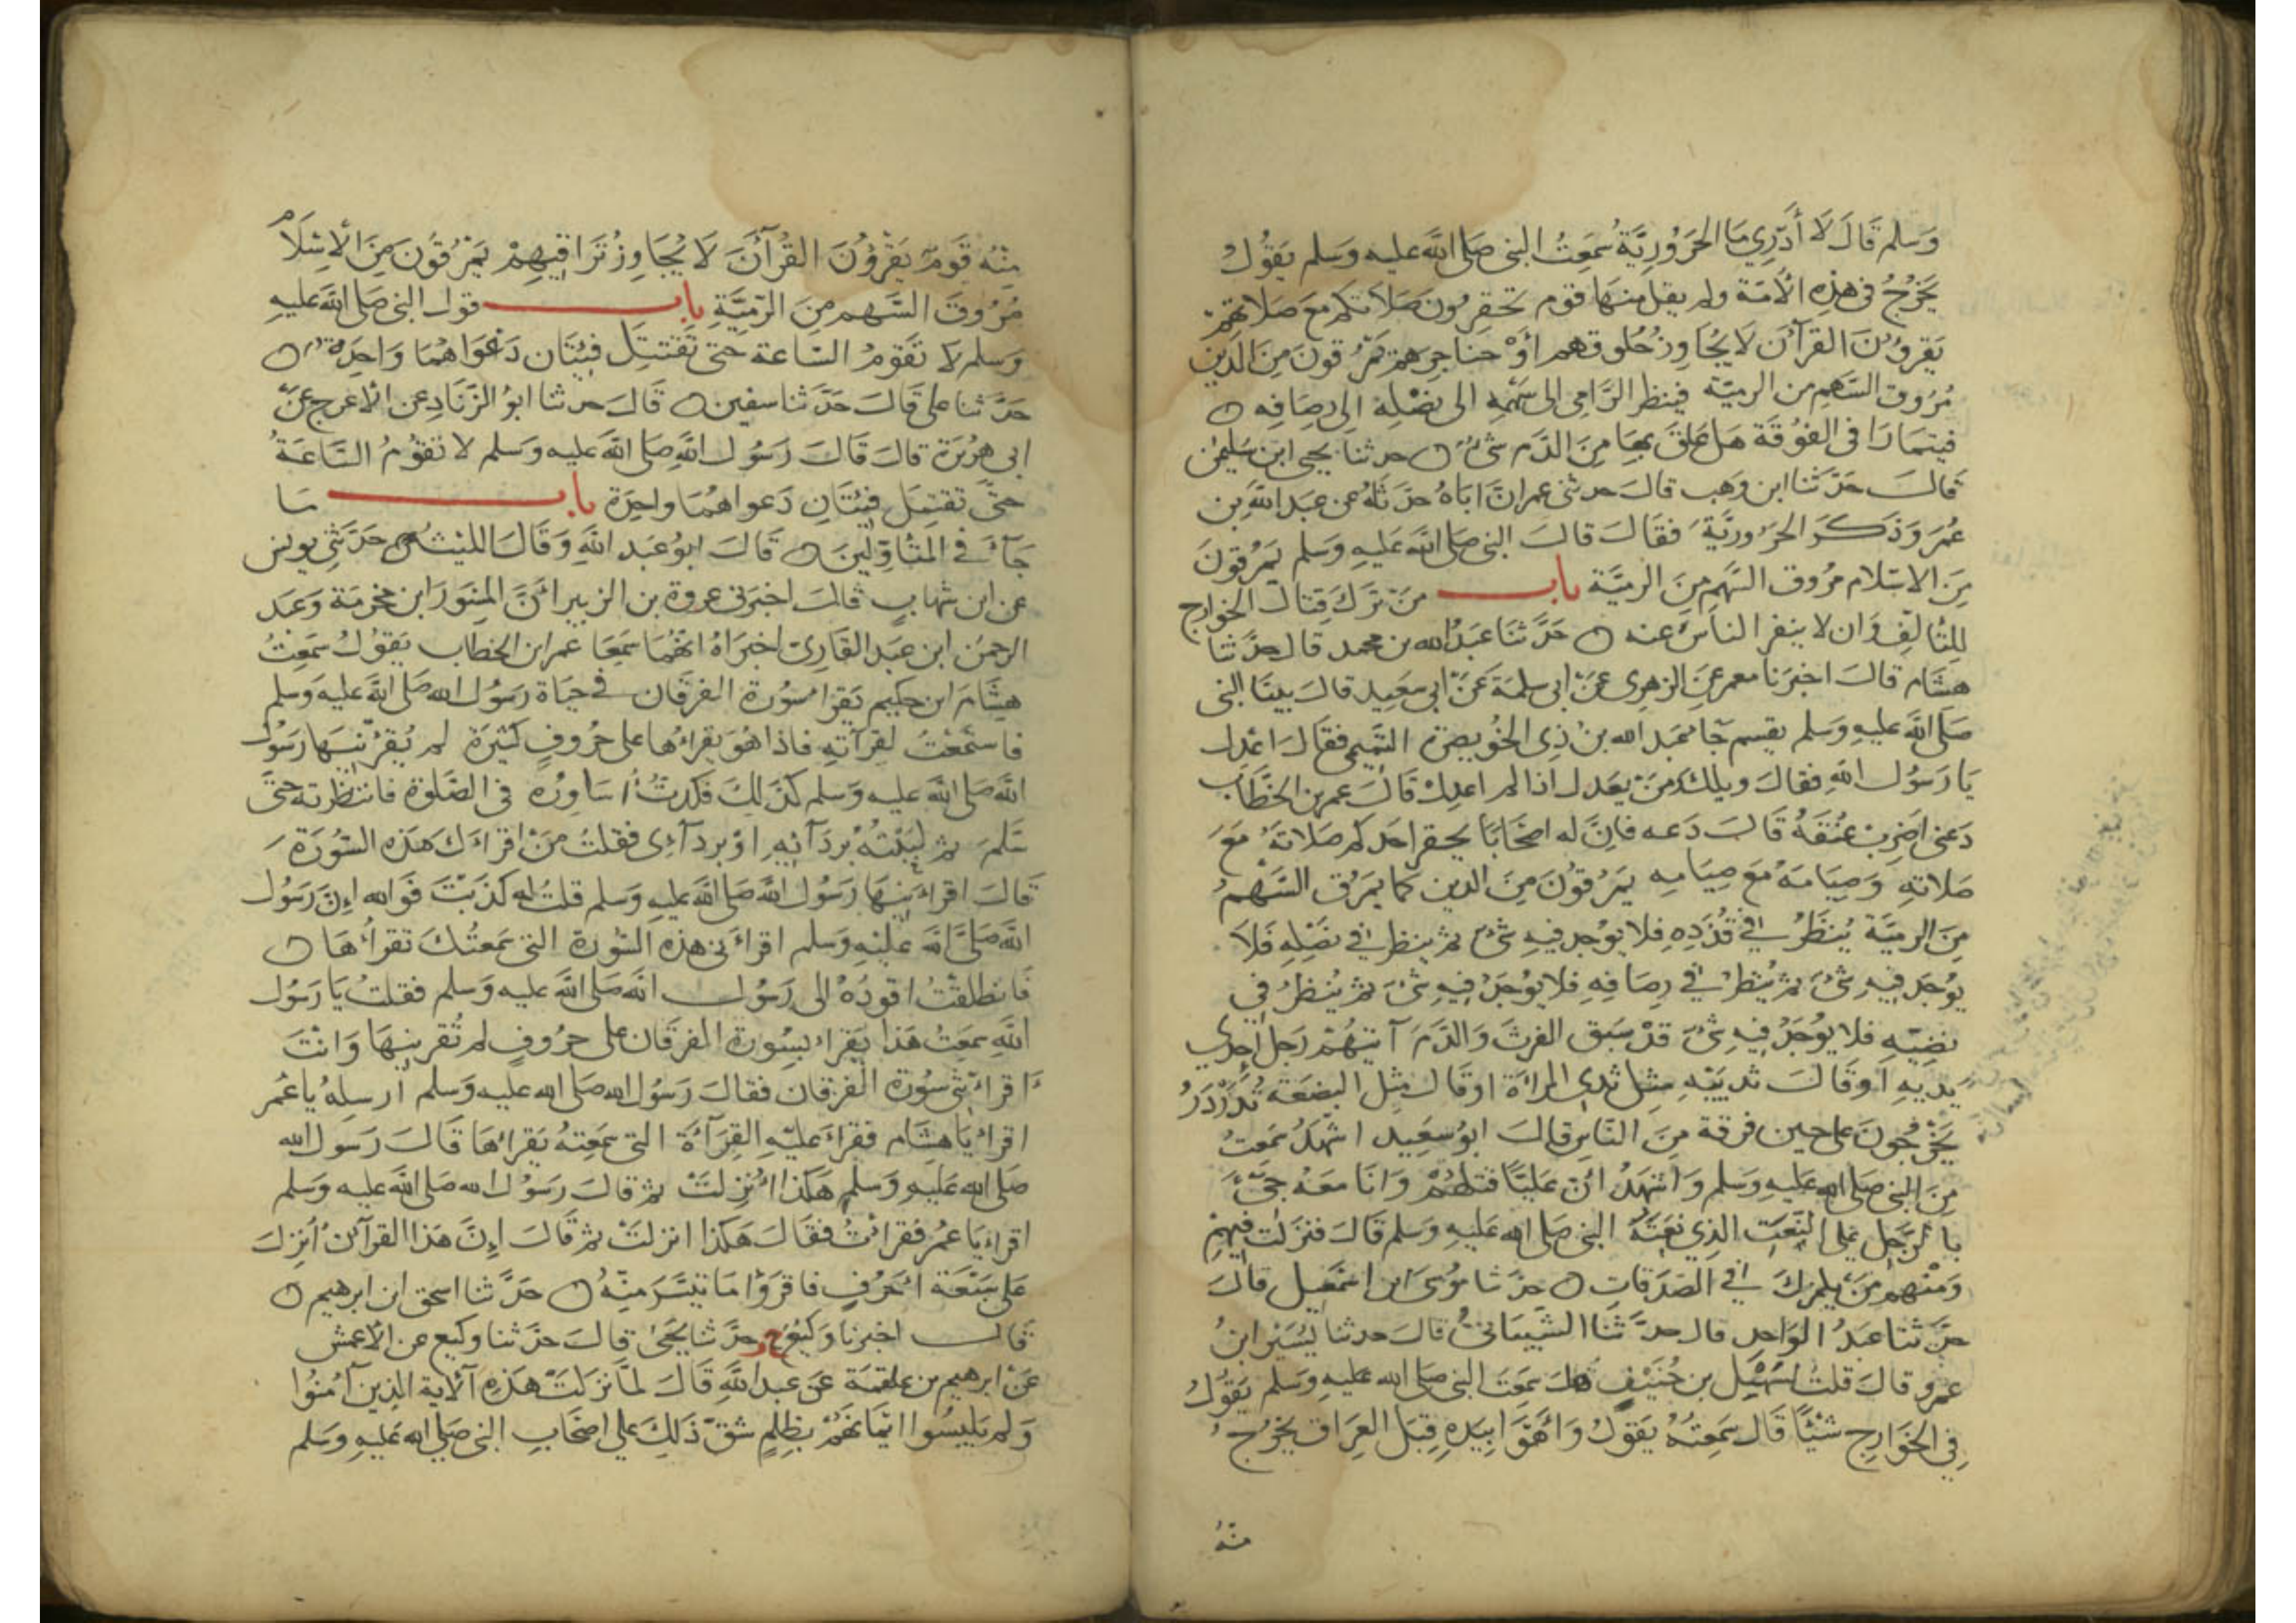 وَسلم قَالَ لَا أَدْرِي مَا الحَرُورِيَّةُ سَمِعْتُ النبى صَلى اللَّه عليه وَسَلم يَقُولُ
يَخْرُجُ فى هذِهِ الأُمَّة ولم يقل منهَا قوم تحقِرُونَ صَلَاتكم مَعَ صَلاتهم
يَقرؤُنَ القرآنَ لَا يُجَاوِزُ حُلُوقهم أوْ حنَاجِرهم يَمْرُقونَ مِنَ الدين
مُرُوقَ السَّهمِ من الرميّة فينظر الرَّامى الى سَهْمِهِ الى نصْلِهِ الى رِصَافِه
فيتمَارَا فى الفوُقَة هَل عَلقَ بهَا مِنَ الدَّم شئٌ حدثنا يحيى ابن سُليمٰن
قالَ حَدَّثَنا ابن وَهب قالَ حدثنى عمر انَّ ابَاهُ حَدَّثَهُ عن عبَد اللَّهِ بن
عُمَرَ وَذَكَرَ الحَرُورِيَّةَ فقَالَ قالَ النبى صَلى اللَّه عَليهِ وَسَلم يَمْرُقونَ
مِنَ الاسْلام مرُوق السَّهمِ مِنَ الرميَّة باب مَنْ تَرَكَ قِتَالَ الخوَارج
لِلتَّالفِ وَان لا ينفر الناسُ عنه حَدَّثَنَا عَبْدُ الله بن محمد قال حدَّثنا
هِشَام قالَ اخبَرَنا معمر عَنِ الزهرى عَنْ ابى سلمَة عَنْ ابى سَعِيد قالَ بينَا النبى
صَلى اللَّه عليهِ وَسَلم يقسم جَآ عَبد الله بن ذِى الخوُيصرة التَّميمى فقَالَ اعْدِل
يَا رَسُولَ اللَّهِ فقالَ ويلكَ مَنْ يعَدل اذا لم اعدِلْ قَالَ عمر بن الخطَّاب
دَعنى اضرِب عُنُقَهُ قَالَ دَعه فانَّ له اصْحَابًا يحقر احدكم صَلاتَهُ مَعَ
صَلاتِهِ وَصِيَامَهُ مَعَ صِيَامِهِ يَمرُقوُنَ مِنَ الدين كما يمرُق السَّهْمُ
مِنَ الرميَّة يُنظَرُ فى قُذَذِهِ فلا يوُجد فيهِ شَئٌ ثم ينظر فى نَصْلِهِ فَلاَ
يوُجَد فيهِ شئٌ ثم يُنظرُ فى رِصَافِهِ فلا يوُجَدُ فيهِ شئٌ ثم يُنظرُ فى
نَضِيِّهِ فلا يوُجَدُ فيهِ شئٌ قدْ سَبَق الفرثَ وَالدَّمَ آيتهُمْ رَجل احدى
يديهِ اوقَالَ ثديَيْهِ مثل ثدى المراةِ اوقالَ مِثْل البضعَة تَدَرْدَرُ
يَخْرُجُونَ على حين فرقة مِنَ النَّاس قالَ ابوُ سَعِيد اشهَدُ سَمعتُ
مِنَ النبى صَلى اللهِ عَليهِ وَسَلم وَاشهَدُ انَّ عَليًّا قتلَهُمْ وَانَا مَعَهُ جئَ
بالرَّجل على النَّعتِ الذِي نَعَتَهُ النبى صَلى الله عَليهِ وَسَلم قَالَ فنزَلت فِيهِمْ
وَمنْهم مَنْ يلمزكَ فى الصَّدَقاتِ حَدَّثنا مُوسَى ابن اسْمٰعيل قالَ
حَدَّثنا عَبدُ الواحِد قال حدَّثَنا الشيبَانىُّ قالَ حدثنا يُسَيْر ابنُ
عمرو قالَ قلتُ لسَهْلِ بن حُنَيْفٍ هَل سَمِعَت النبى صَلى الله عليهِ وَسَلم يَقُولُ
فِي الخَوَارِج شيْئًا قَالَ سَمِعتُهُ يَقولُ وَأهْوَى بيَدِهِ قِبَلَ العِرَاق يخرُجُ
منهُ
مِنْهُ قَومٌ يَقْرؤُنَ القُرآنَ لَا يُجَاوِزُ تَرَاقيهِمْ يَمْرُقونَ مِنَ الإِسْلَامِ
مُرُوقَ السَّهم مِنَ الرَّميَّةِ باب قول النبى صَلى اللَّه عَليهِ
وَسَلم لا تَقومُ السَّاعة حَتى تَقْتتِل فِئتَان دَعْوَاهُمَا وَاحِدَة
حَدَّثنا على قَالَ حَدَّثنا سفين قَالَ حدثنا ابوُ الزِّنَادِ عن الاعرج عَنْ
ابى هُريْرَة قالَ قَالَ رَسُول اللَّهِ صَلى اللَّه عَليه وَسَلم لا تقوُمُ السَّاعَةُ
حَتَّى تقتتِلَ فِئتَانِ دَعواهُمَا واحِدَة باب مَا
جَآءَ فى المتْاَوِّلينَ قَالَ ابوُ عَبد اللَّهِ وَقَالَ الليْثُ حَدَّثَنِى يونس
عن ابن شهَابٍ قالَ اخبَرَنى عروة بن الزبير أنَّ المِسْوَرَ ابن مخرمَة وَعَبد
الرحمٰن ابن عَبد القَارِىّ اخبَرَاهُ انهُمَا سَمِعَا عمر ابن الخطاب يَقوُلُ سَمِعْتُ
هِشَامَ ابن حَكيم يَقرا سوُرة الفرقَان فى حيَاة رَسُول الله صَلى اللَّه عليه وَسَلم
فاسْتَمَعْتُ لقرآتهِ فاذا هُوَ يقراُها على حُروُفٍ كثيرَة لم يُقرِئنيهَا رَسوُل
اللَّه صَلى اللَّه عليه وَسَلم كذَلِكَ فكدتُ اسَاوِرُه فى الصَّلوٰة فانتظرته حَتَّى
سَلَّمَ ثم لَبَّبْتُهُ بردَآئِهِ اوْ بردآءِى فقلتُ مَنْ اقراَءكَ هَذه السُّورَةَ
قَالَ اقراءَنيهَا رَسُول اللَّه صَلى اللَّه عَليهِ وَسَلم قلتُ له كذَبْتَ فَوَالله اِنَّ رَسُول
اللَّه صَلى اللَّه عليْهِ وَسَلم اقراءَنى هذه السُّورة التى سَمعتُكَ تقرأُهَا
فَانطلقْتُ اقودُهُ الى رَسُول اللَّه صَلى اللَّه عليه وَسَلم فقلتُ يَا رَسُول
اللَّهِ سَمِعتُ هَذا يَقراء بسُورة الفرقَان على حرُوفٍ لم تُقرِئنيهَا وَانْتَ
اقراءَتَنى سوُرة الفرقان فقالَ رَسُول الله صَلى الله عليه وَسَلم ارسِلهُ يا عُمر
اقراء يَا هشَام فقراءَ عليْهِ القِرَآءَة التى سَمعتهُ يَقرائهَا قَالَ رَسوَل الله
صَلى الله عَليهِ وَسَلم هَكذا انْزِلتْ ثم قالَ رَسوُل الله صَلى اللَّه عَليه وَسَلم
اقراء يَا عمُر فَقَرائتُ فقَالَ هَكَذا انزلتْ ثم قَالَ اِنَّ هَذا القرآنَ أُنزِلَ
عَلى سَبْعَة أحْرفٍ فاقرَؤا مَا تيَسَّرَ مِنْهُ حَدَّثنا اسحٰق ابن ابرهيم
قَالَ اخبرنا وَكيعٌ ح وحدَّثنا يَحيَى قالَ حَدَّثنا وكيع عن الأعمش
عَنْ ابرهيم بن علقمَة عَن عبد اللَّهِ قَالَ لمَّا نزَلتْ هَذِهِ آلآية الذين آمُنُوا
وَلم يَلبِسُوا ايمَانهُمْ بظُلمٍ شَقَّ ذَلكَ على اصْحَابِ النبى صَلى الله عَليهِ وَسَلم